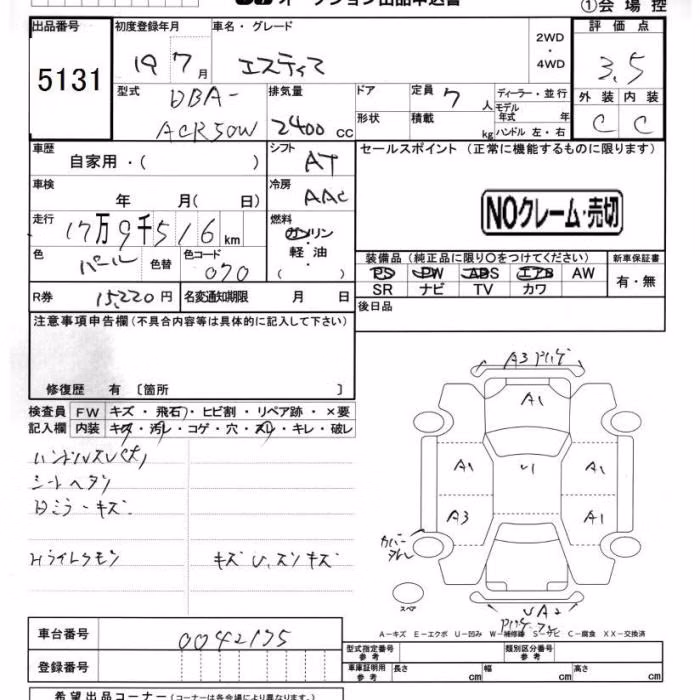 オークション出品申込書
①会場控
出品番号
5131
初度登録年月
19 7 月
車名・グレード
エスティマ
2WD
・
4WD
評価点
3.5
外装 内装
C C
型式
DBA-
ACR50W
排気量
2400 cc
ドア
形状
定員 7 人
積載 kg
ディーラー・並行
モデル年式 年
ハンドル 左・右
車歴
自家用・( )
シフト
AT
セールスポイント (正常に機能するものに限ります)
NOクレーム・売切
車検
年 月( 日)
冷房
AAC
走行
17万9千516km
燃料
ガソリン
・
軽油
( )
色
パール
色替
色コード
070
装備品 (純正品に限り○をつけてください)
PS PW ABS エアB AW
SR ナビ TV カワ
新車保証書
有・無
R券 15,220円
名変通知期限 月 日
後日品
注意事項申告欄(不具合内容等は具体的に記入して下さい)
修復歴 有 〔箇所 〕
検査員
記入欄
FW キズ・飛石・ヒビ割・リペア跡・×要
内装 キズ・汚レ・コゲ・穴・スレ・キレ・破レ
ハンドルスレ(大)
シートヘタリ
Dミラーキズ
Hライトクモリ
キズ U、スリキズ
A3
A1
A1
U1
A1
A3
A1
カバー
UA2
スペア
A-キズ E-エクボ U-凹み W-補修跡 S-サビ C-腐食 XX-交換済
車台番号
0042175
登録番号
型式指定番号
参考
類別区分番号
参考
車庫証明用
参考
長さ cm
幅 cm
高さ cm
希望出品コーナー(コーナーは各会場により異なります。)